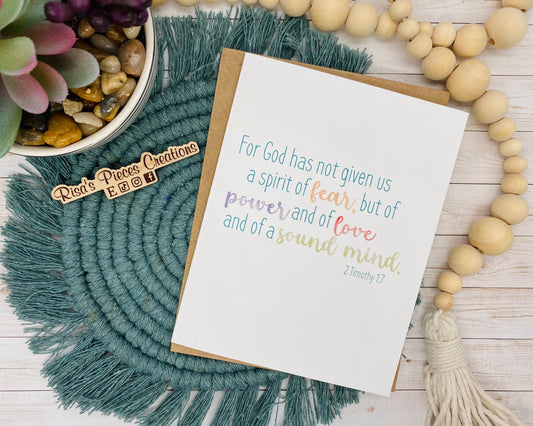 Risa's Pieces Creations
E
For God has not given us
a spirit of fear, but of
power and of love
and of a sound mind.
2 Timothy 1:7